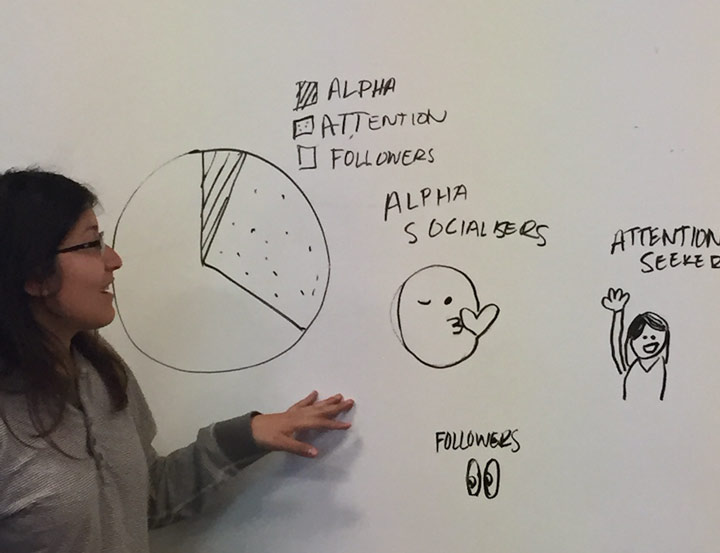 ALPHA
ATTENTION
FOLLOWERS
ALPHA
SOCIALISERS
ATTENTION
SEEKER
FOLLOWERS